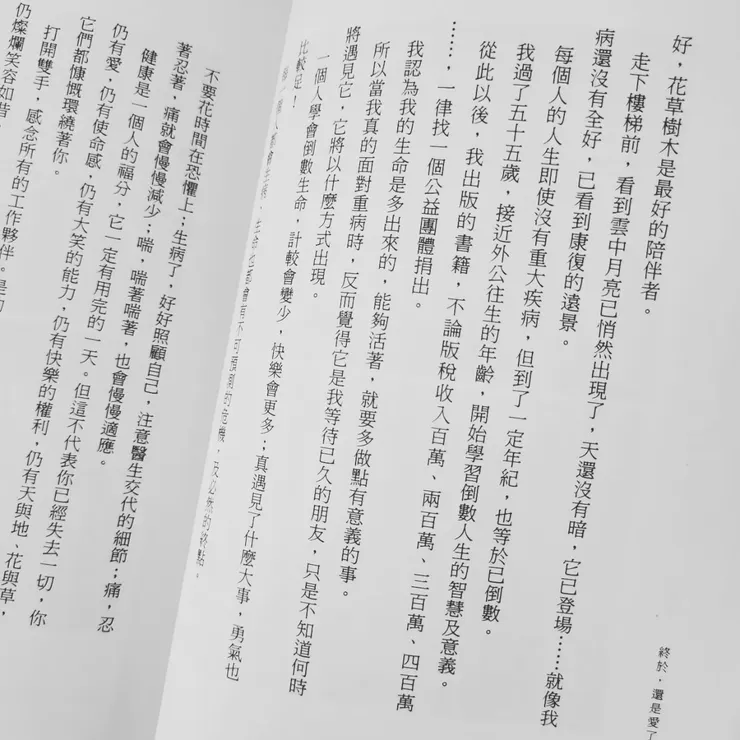 好，花草樹木是最好的陪伴者。
走下樓梯前，看到雲中月亮已悄然出現了，天還沒有暗，它已登場……就像我
病還沒有全好，已看到康復的遠景。
每個人的人生即使沒有重大疾病，但到了一定年紀，也等於已倒數。
我過了五十五歲，接近外公往生的年齡，開始學習倒數人生的智慧及意義。
從此以後，我出版的書籍，不論版稅收入百萬、兩百萬、三百萬、四百萬
……，一律找一個公益團體捐出。
我認為我的生命是多出來的，能夠活著，就要多做點有意義的事。
所以當我真的面對重病時，反而覺得它是我等待已久的朋友，只是不知道何時
將遇見它，它將以什麼方式出現。
一個人學會倒數生命，計較會變少，快樂會更多；真遇見了什麼大事，勇氣也
比較足！
的危機，及必然的終點。
不要花時間在恐懼上；生病了，好好照顧自己，注意醫生交代的細節；痛，忍
著忍著，痛就會慢慢減少；喘，喘著喘著，也會慢慢適應。
健康是一個人的福分，它一定有用完的一天。但這不代表你已經失去一切，你
仍有愛，仍有使命感，仍有大笑的能力，仍有快樂的權利，仍有天與地、花與草，
它們都慷慨環繞著你。
打開雙手，感念所有的工作夥伴。是
仍燦爛笑容如昔，
終於，還是愛了